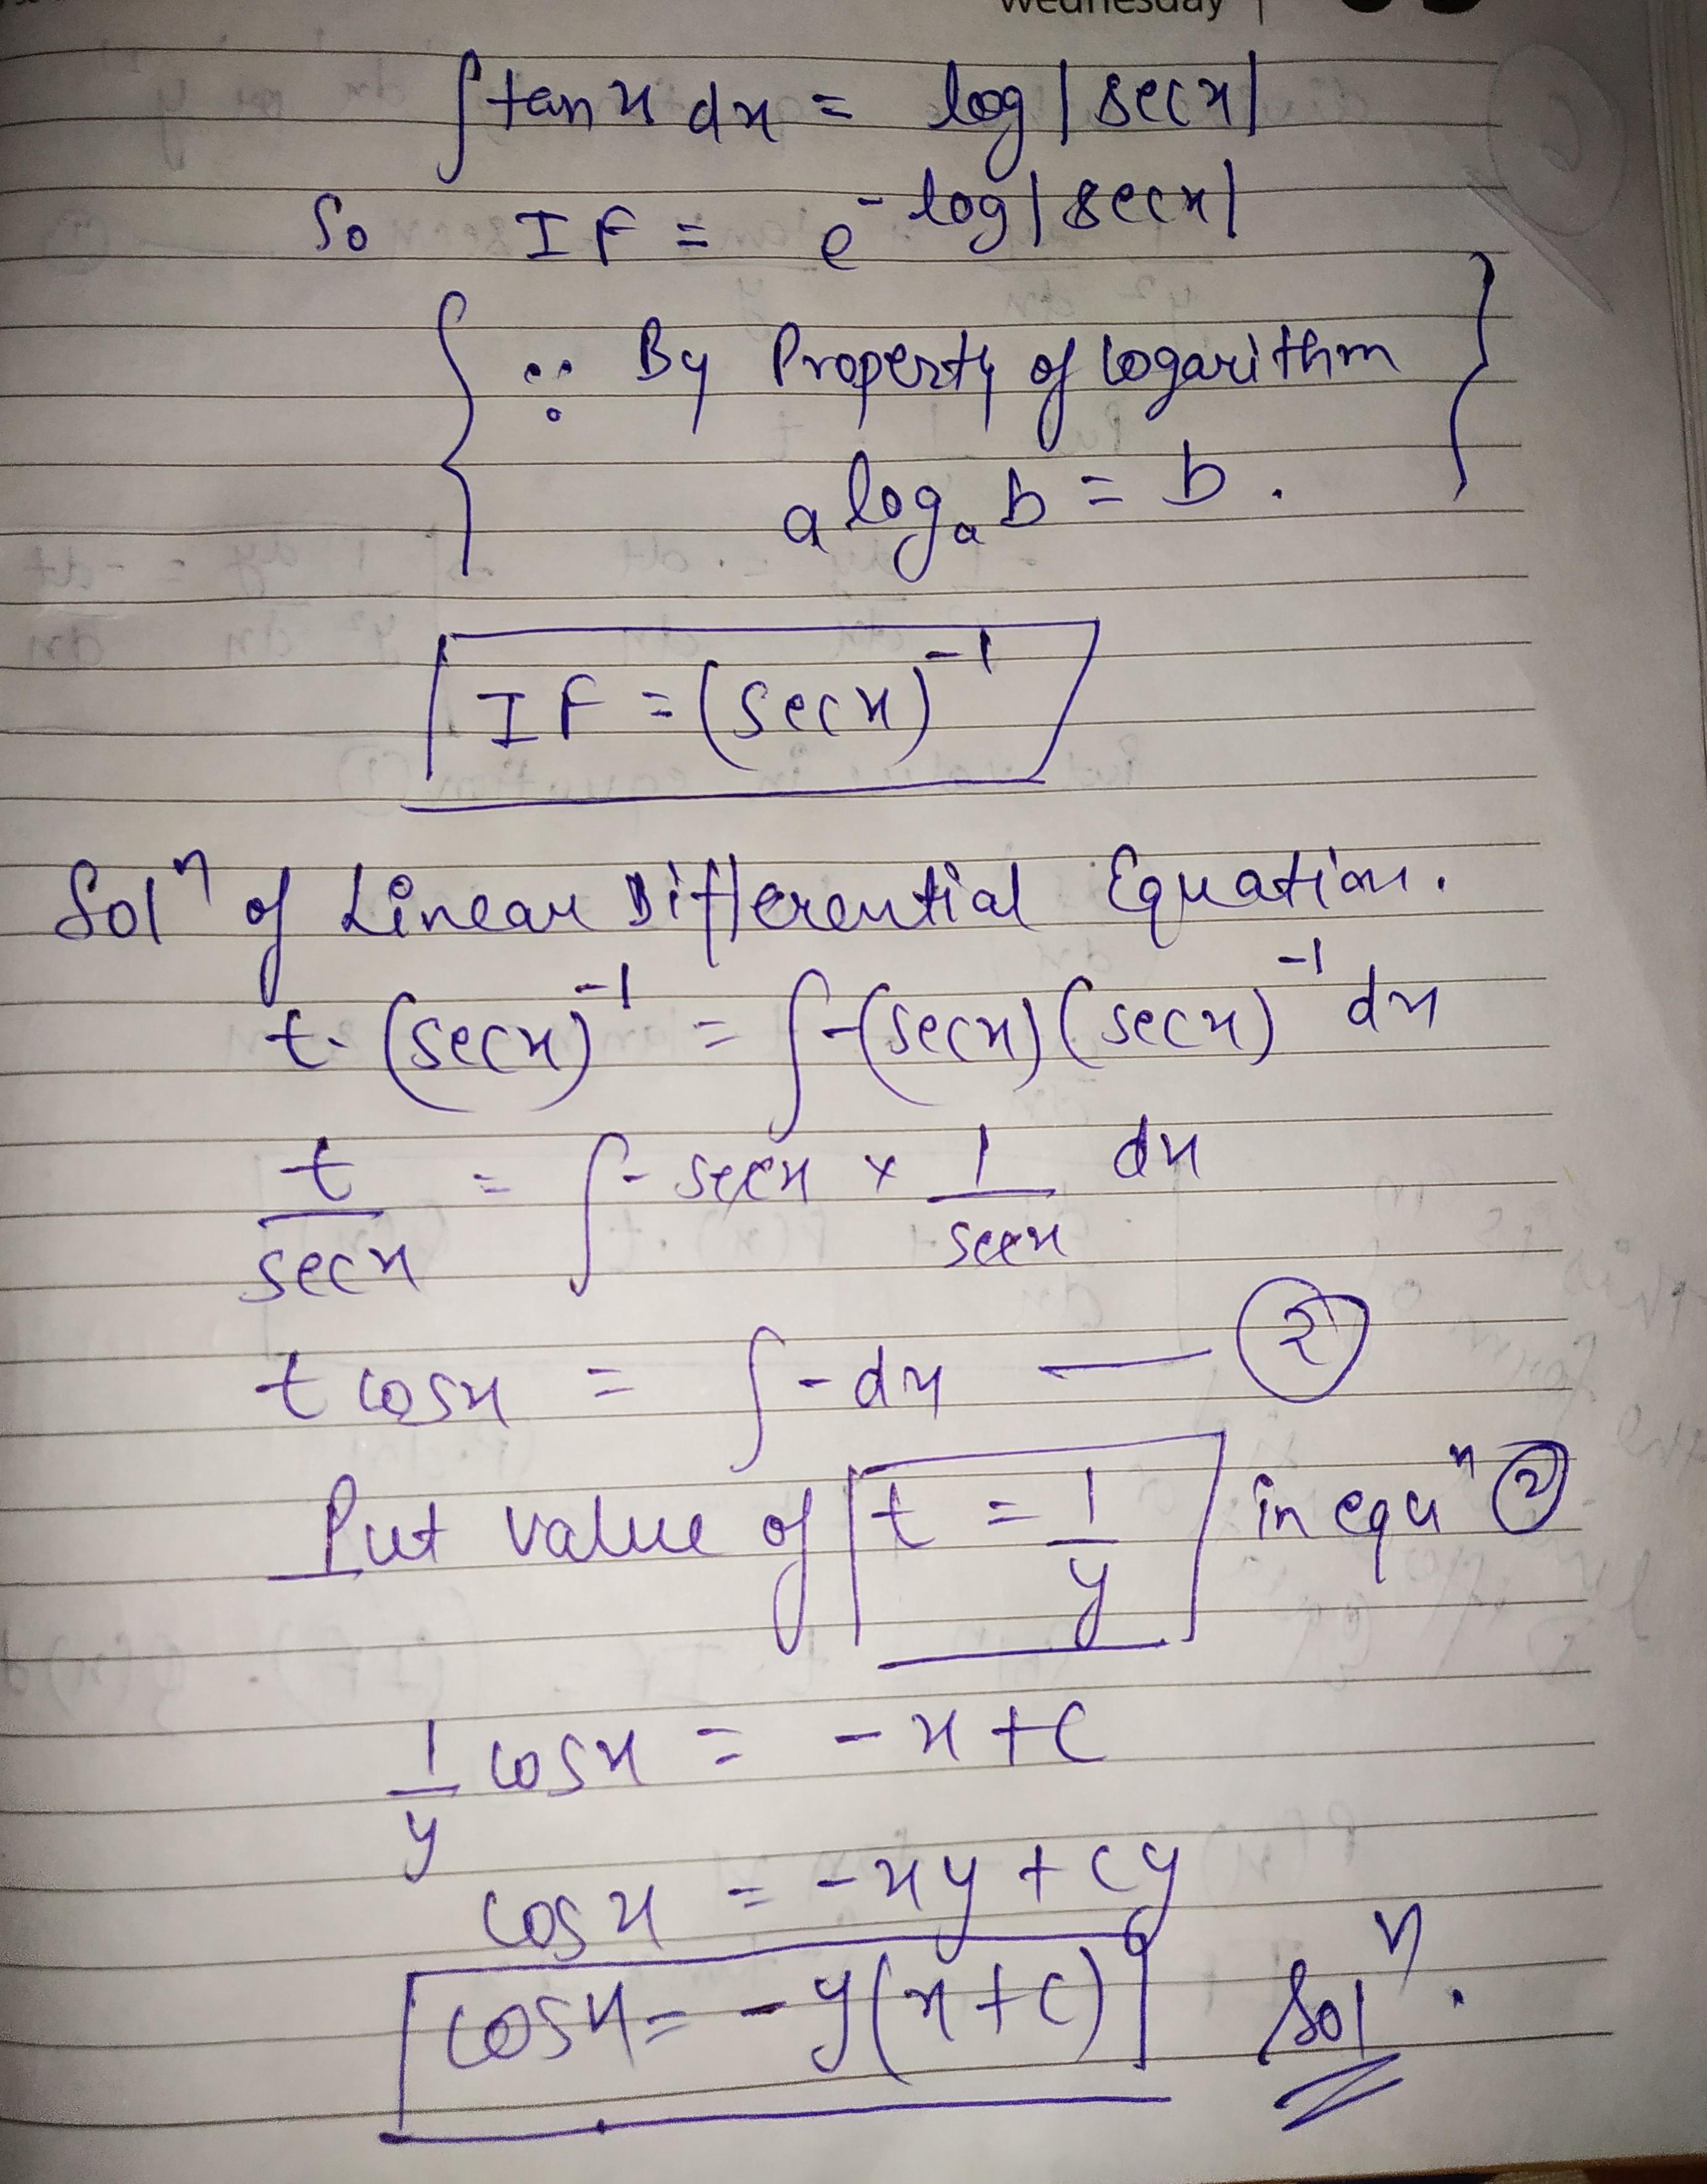 Wednesday
∫tan x dx = log|secx|
So IF = e^-log|secx|
{∵ By Property of logarithm
a^log_a b = b.}
IF = (secx)^-1
Solⁿ of Linear Differential Equation.
t·(secx)^-1 = ∫-(secx)(secx)^-1 dx
t/secx = ∫-secx × 1/secx dx
t cosx = ∫-dx — ②
Put value of t = 1/y in equⁿ ②
1/y cosx = -x+C
cosx = -xy + cy
cosx = -y(x+c) Solⁿ.